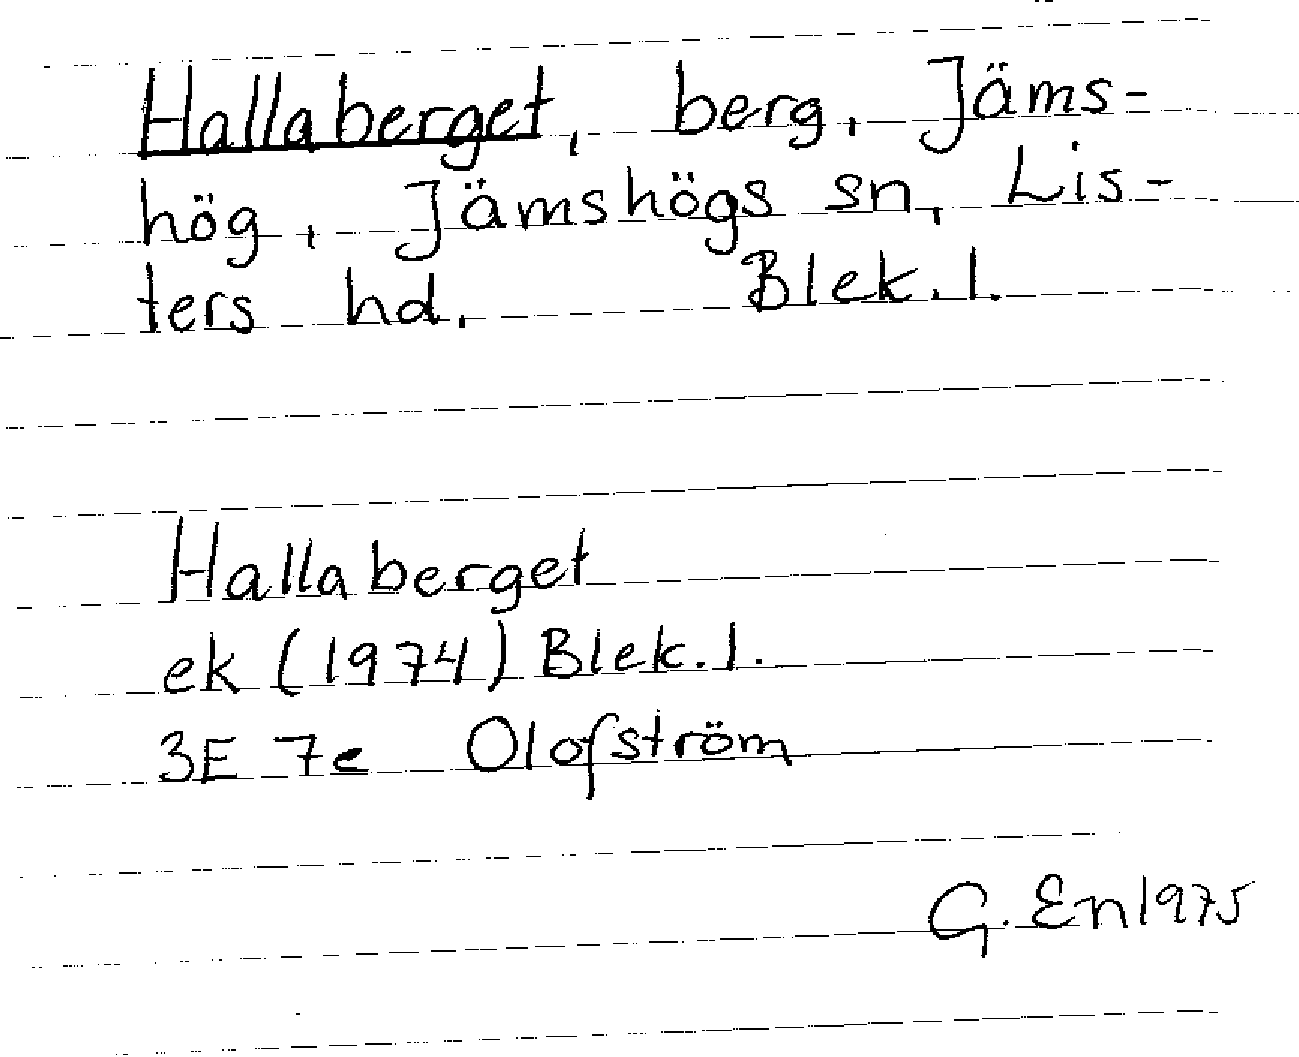 Hallaberget, berg, Jäms=
hög, Jämshögs sn, Lis-
ters hd. Blek. l.
Hallaberget
ek (1974) Blek. l.
3E 7e Olofström
G. En 1975